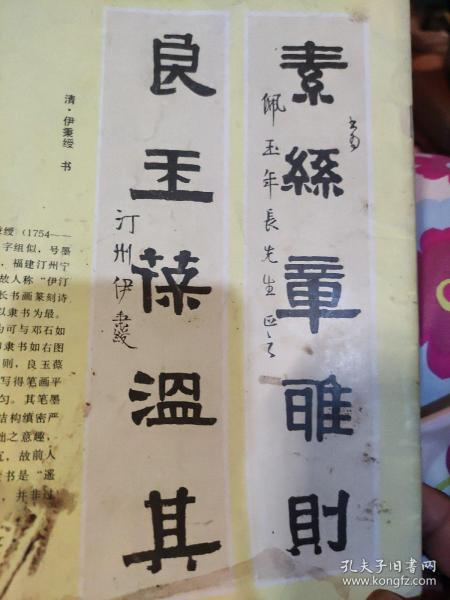 素絲章唯則
佩玉年長先生正之
良玉葆溫其
汀州伊秉綬
清·伊秉绶 书
绶（1754——
字组似，号墨
，福建汀州宁
故人称“伊汀
长书画篆刻诗
以隶书为最。
为可与邓石如
隶书如右图
则，良玉葆
写得笔画平
匀。其笔墨
结构缜密严
拙之意趣，
，故前人
书是“遥
，并非过
孔夫子旧书网
www.kongfz.com